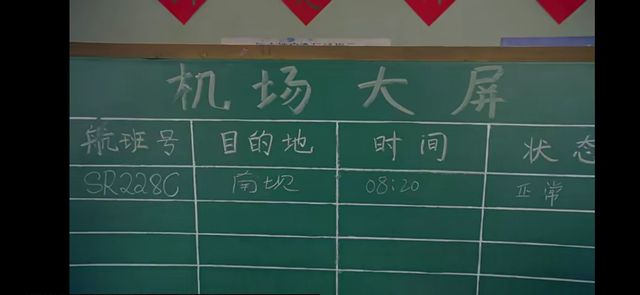 机场大屏
航班号 目的地 时间 状态
SR228C 南坝 08:20 正常